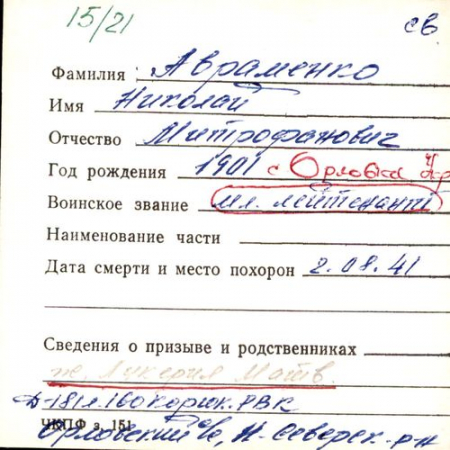 15/21 св
Фамилия Авраменко
Имя Николай
Отчество Митрофанович
Год рождения 1901 с Орловка
Воинское звание мл. лейтенант
Наименование части
Дата смерти и место похорон 2.08.41
Сведения о призыве и родственниках
ж. Лукерия Матв.
Д-181л.160 Корюк. РВК
ЧКПФ з. 151
Орловский с/с, Н-Северск. р-н